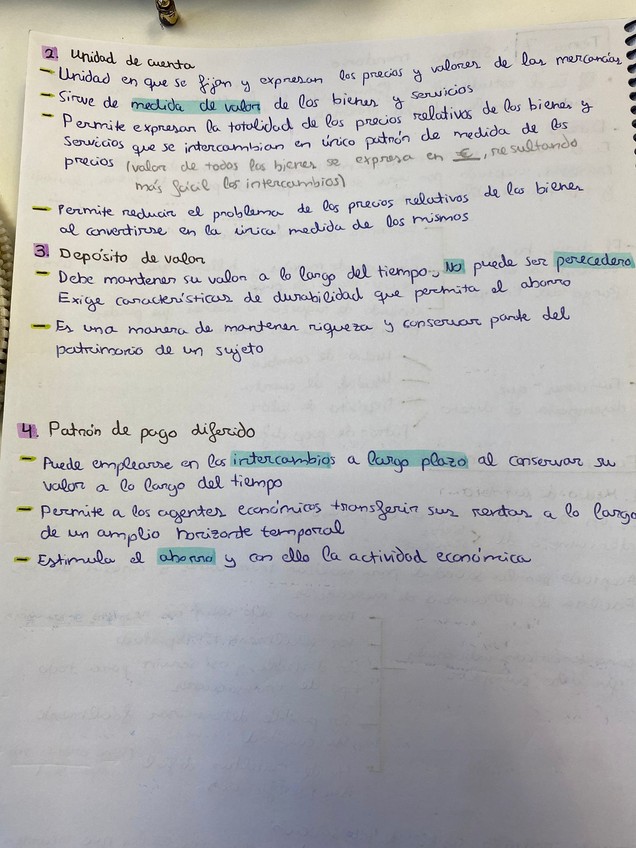 2. Unidad de cuenta
- Unidad en que se fijan y expresan los precios y valores de las mercancías
- Sirve de medida de valor de los bienes y servicios
- Permite expresar la totalidad de los precios relativos de los bienes y
servicios que se intercambian en único patrón de medida de los
precios (valor de todos los bienes se expresa en €, resultando
más fácil los intercambios)
- Permite reducir el problema de los precios relativos de los bienes
al convertirse en la única medida de los mismos
3. Depósito de valor
- Debe mantener su valor a lo largo del tiempo, No puede ser perecedero
Exige características de durabilidad que permita el ahorro
- Es una manera de mantener riqueza y conservar parte del
patrimonio de un sujeto
4. Patrón de pago diferido
- Puede emplearse en los intercambios a largo plazo al conservar su
valor a lo largo del tiempo
- Permite a los agentes económicos transferir sus rentas a lo largo
de un amplio horizonte temporal
- Estimula el ahorro y con ello la actividad económica